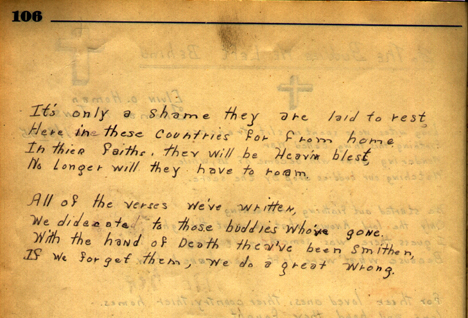 106
It's only a shame they are laid to rest
Here in these Countries for from home
In thier faiths, they will be Heavin blest,
No longer will they have to roam
All of the verses we've written,
We didecated to those buddies who've gone.
With the hand of Death they've been smithen,
If we forget them, we do a great wrong.